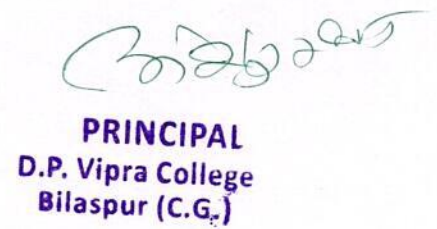 PRINCIPAL
D.P. Vipra College
Bilaspur (C.G.)